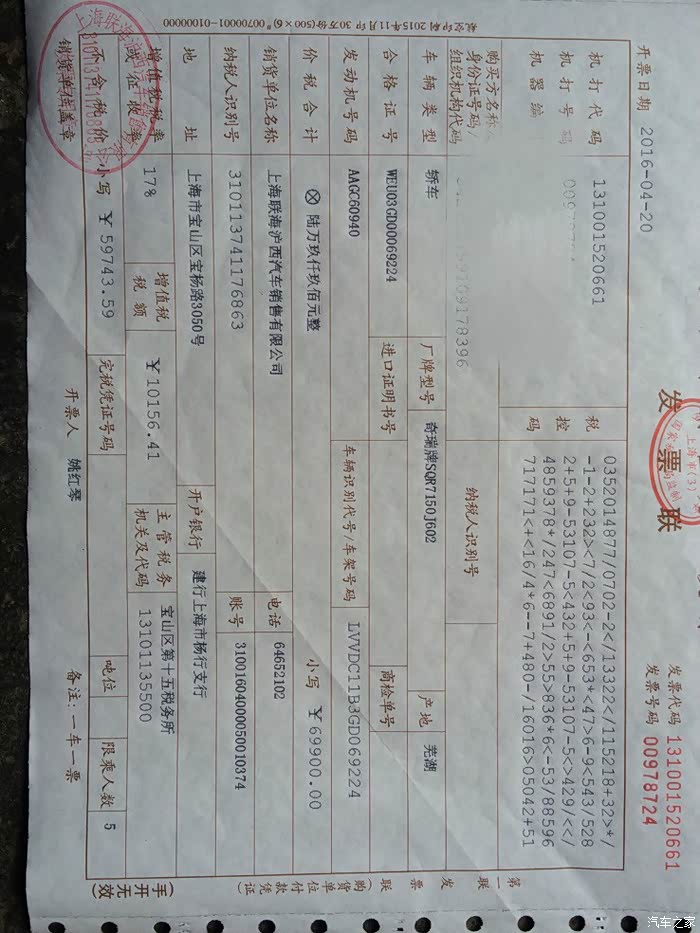 发票联
发票代码 131001520661
发票号码 00978724
开票日期 2016-04-20
机打代码 131001520661
机打号码 00978724
机器编
税控码
0352014877/0702-2</13322</115218+32>*/
-1-2+232><7/2<93<-<653*<47>6-9<543/528
2+5+9-53107-5<432+5+9-53107-5<>429/<</
4859378*/247<6891/2>55>836*6<-53/88596
717171<+<16/4*6--7+480-/16016>05042+51
购买方名称
身份证号码/
组织机构代码
纳税人识别号
车辆类型 轿车 厂牌型号 奇瑞牌SQR7150J602 产地 芜湖
合格证号 WEU03GD00069224 进口证明书号 商检单号
发动机号码 AAGC60940 车辆识别代号/车架号码 LVVDC11B3GD069224
价税合计 ⊗ 陆万玖仟玖佰元整 小写 ￥69900.00
销货单位名称 上海联海沪西汽车销售有限公司 电话 64652102
纳税人识别号 310113741176863 账号 31001604000050010374
地址 上海市宝山区宝杨路3050号 开户银行 建行上海市杨行支行
增值税税率
或征收率 17% 增值税
税额 ￥10156.41 主管税务
机关及代码 宝山区第十五税务所
13101135500
不含税价 小写 ￥59743.59 完税凭证号码 吨位 限乘人数 5
销货单位盖章 开票人 姚红琴 备注:一车一票
第一联 发票联 (购货单位付款凭证)
(手开无效)
印刷 2015年11月印 30万份(500×6) 00700001-01000000
汽车之家